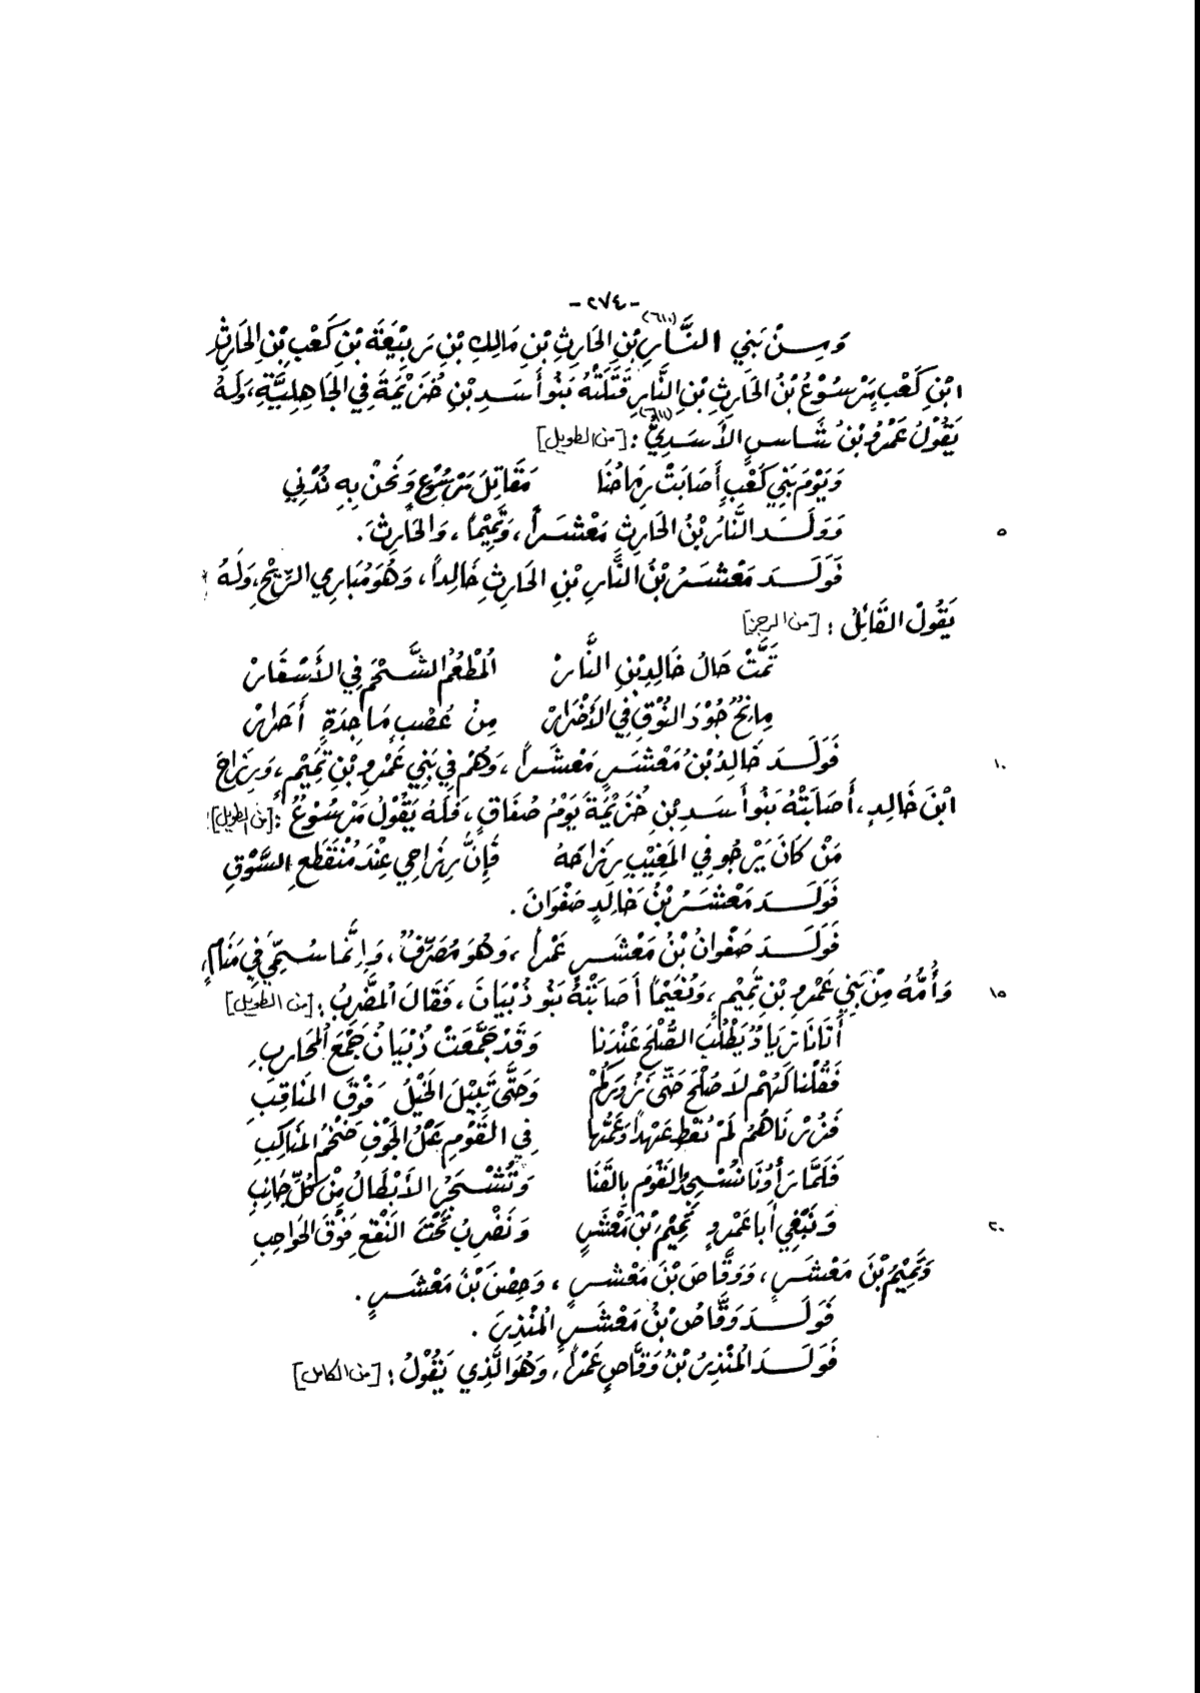 -٢٧٤-
وَمِنْ بَنِي النَّارِ(٦١٠) بْنِ الحَارِثِ بْنِ مَالِكِ بْنِ رَبِيْعَةَ بْنِ كَعْبِ بْنِ الحَارِثِ
ابْنِ كَعْبٍ يَرْسُوْعُ بْنُ الحَارِثِ بْنِ النَّارِ قَتَلَتْهُ بَنُو أَسَدِ بْنِ خُزَيْمَةَ فِي الجَاهِلِيَّةِ، وَلَهُ
يَقُوْلُ عَمْرُو بْنُ شَاسٍ الأَسَدِيُّ(٦١١) : [من الطويل]
وَيَوْمَ بَنِي كَعْبٍ أَصَابَتْ رِمَاحُنَا مَقَاتِلَ يَرْسُوْعٍ وَنَحْنُ بِهِ نُدْنِي
٥ وَوَلَدَ النَّارُ بْنُ الحَارِثِ مَعْشَراً، وَتَمِيْماً، وَالحَارِثَ.
فَوَلَدَ مَعْشَرُ بْنُ النَّارِ بْنِ الحَارِثِ خَالِداً، وَهُوَ مُبَارِي الرِّيْحِ، وَلَهُ
يَقُولُ القَائِلُ : [من الرجز]
تَمَّتْ حَالُ خَالِدِ بْنِ النَّارْ المُطْعِمُ الشَّحْمَ فِي الأَسْفَارْ
مِانِحُ جُوْدَ النُّوْقِ فِي الأَضْرَارْ مِنْ عُصْبٍ مَاجِدَةٍ أَحَرارْ
١٠ فَوَلَدَ خَالِدُ بْنُ مَعْشَرٍ مَعْشَراً، وَهُمْ فِي بَنِي عَمْرِو بْنِ تَمِيْمٍ، وَرِزَاحَ
ابْنَ خَالِدٍ، أَصَابَتْهُ بَنُو أَسَدِ بْنِ خُزَيْمَةَ يَوْمَ صُفَاقٍ، فَلَهُ يَقُوْلُ يَرْسُوْعُ : [من الطويل]
مَنْ كَانَ يَرْجُو فِي المَغِيْبِ رِزَاحَهُ فَإِنَّ رِزَاحِي عِنْدَ مُنْقَطَعِ السَّوْقِ
فَوَلَدَ مَعْشَرُ بْنُ خَالِدٍ صَفْوَانَ.
فَوَلَدَ صَفْوَانُ بْنُ مَعْشَرٍ عَمْراً، وَهُوَ مُصَرِّفٌ، وَإِنَّمَا سُمِّيَ فِي مَنَامٍ،
١٥ وَأُمُّهُ مِنْ بَنِي عَمْرِو بْنِ تَمِيْمٍ، وَنُعَيْماً أَصَابَتْهُ بَنُو ذُبْيَانَ، فَقَالَ المُضَّرِبُ : [من الطويل]
أَتَانَا زِيَادٌ يَطْلُبُ الصُّلْحَ عِنْدَنَا وَقَدْ جَمَّعَتْ ذُبْيَانُ جَمْعَ المُحَارِبِ
فَقُلْنَا لَهُمْ لاَ صُلْحَ حَتَّى نَزُورَكُمْ وَحَتَّى تَبِيْلَ الخَيْلُ فَوْقَ المَنَاقِبِ
فَزُرْنَاهُمُ لَمْ نُعْطِ عَهْداً وَعَمُّنَا فِي القَوْمِ عَبْلُ الجَوْفِ ضَخْمُ المَنَاكِبِ
فَلَمَّا رَأَوْنَا نَشْجُرُ القَوْمَ بِالقَنَا وَتُشْتَجَرُ الأَبْطَالُ مِنْ كُلِّ جَانِبِ
٢٠ وَنَبْغِي أَبا عَمْرٍو تَمِيْمَ بْنَ مَعْشَرٍ وَنَضْرِبُ تَحْتَ النَقْعِ فَوْقَ الحَوَاجِبِ
وَتَمِيْمَ بْنَ مَعْشَرٍ، وَوَقَّاصَ بْنَ مَعْشَرٍ، وَحِصْنَ بْنَ مَعْشَرٍ.
فَوَلَدَ وَقَّاصُ بْنُ مَعْشَرٍ المُنْذِرَ.
فَوَلَدَ المُنْذِرُ بْنُ وَقَّاصٍ عَمْراً، وَهُوَ الَّذِي يَقُوْلُ : [من الكامل]